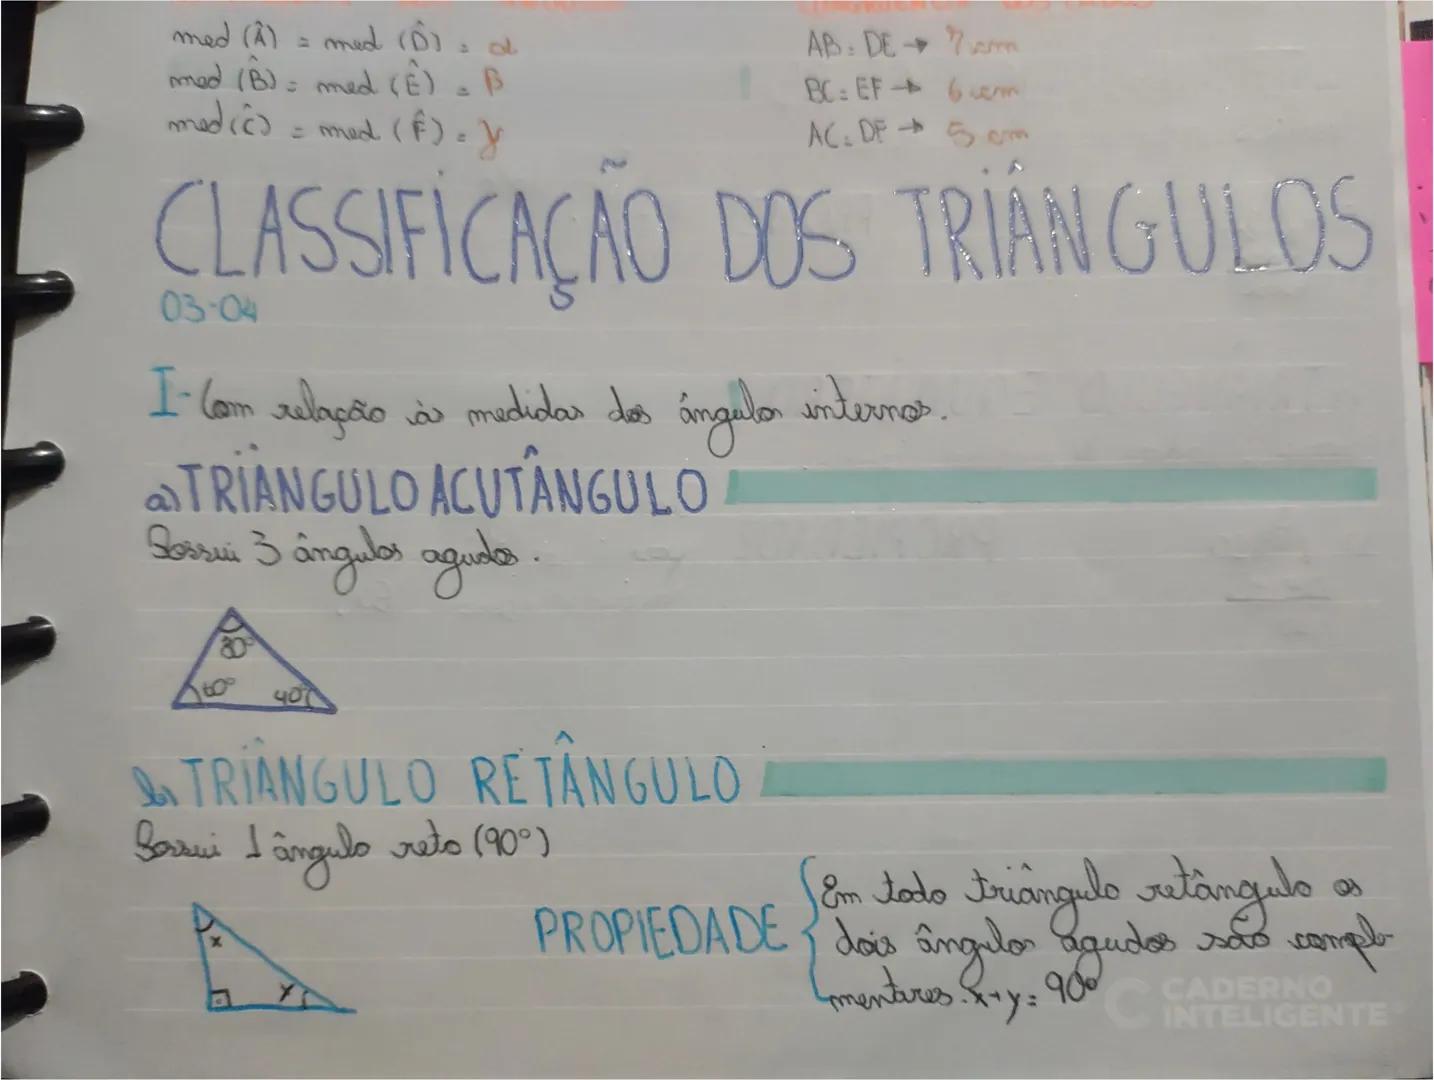 med (Â) = med (D̂) = α
AB = DE → 7 cm
med (B̂) = med (Ê) = β
BC = EF → 6 cm
med (Ĉ) = med (F̂) = γ
AC = DF → 5 cm
CLASSIFICAÇÃO DOS TRIÂNGULOS
03-04
I- Com relação às medidas dos ângulos internos.
a) TRIÂNGULO ACUTÂNGULO
Possui 3 ângulos agudos.
80°
60° 40°
b) TRIÂNGULO RETÂNGULO
Possui 1 ângulo reto (90°)
x
y
PROPIEDADE
Em todo triângulo retângulo os
dois ângulos agudos são comple-
mentares. x+y = 90°
CADERNO
INTELIGENTE